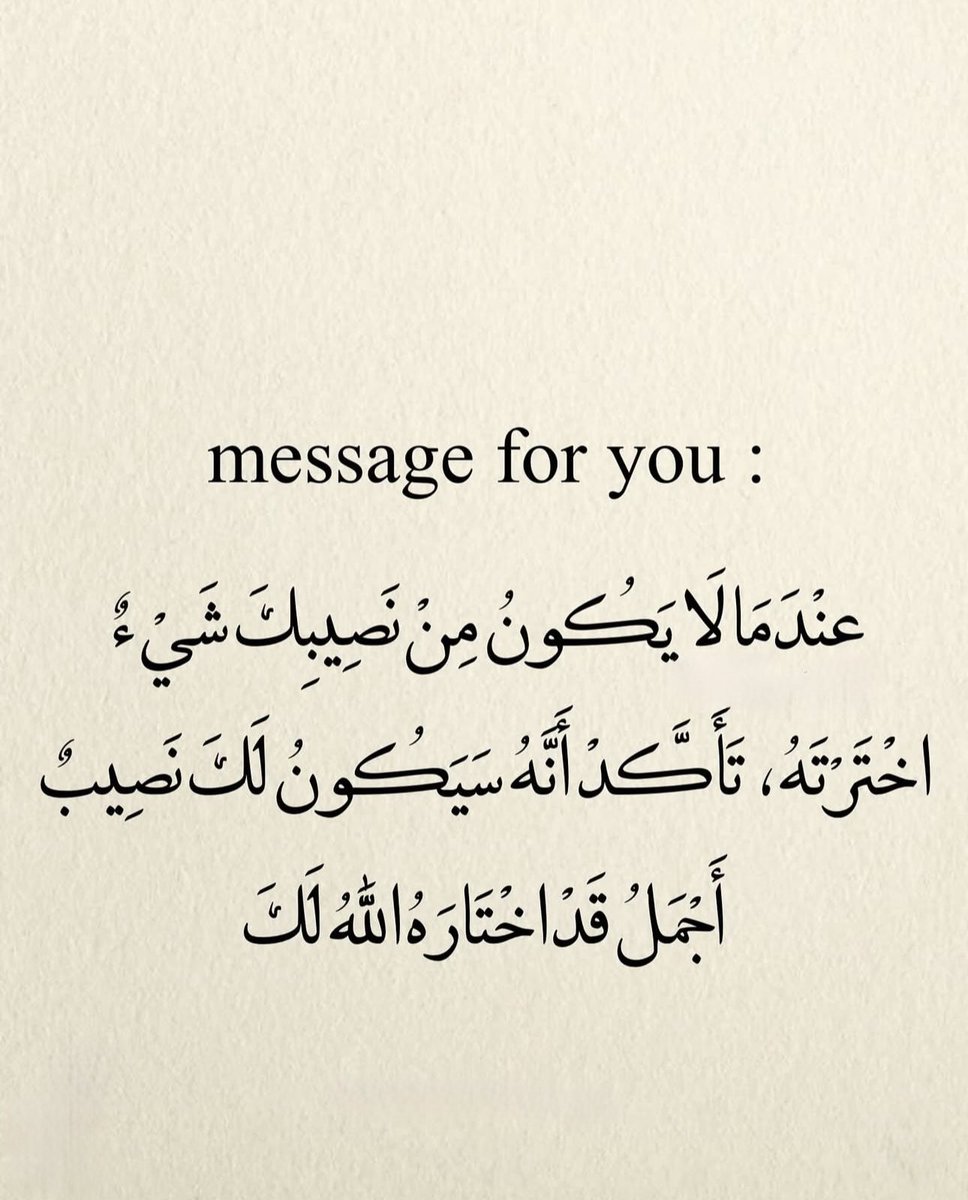 message for you :
عِنْدَمَا لَا يَكُونُ مِنْ نَصِيبِكَ شَيْءٌ
اخْتَرْتَهُ، تَأَكَّدْ أَنَّهُ سَيَكُونُ لَكَ نَصِيبٌ
أَجْمَلُ قَدْ اخْتَارَهُ اللّٰهُ لَكَ